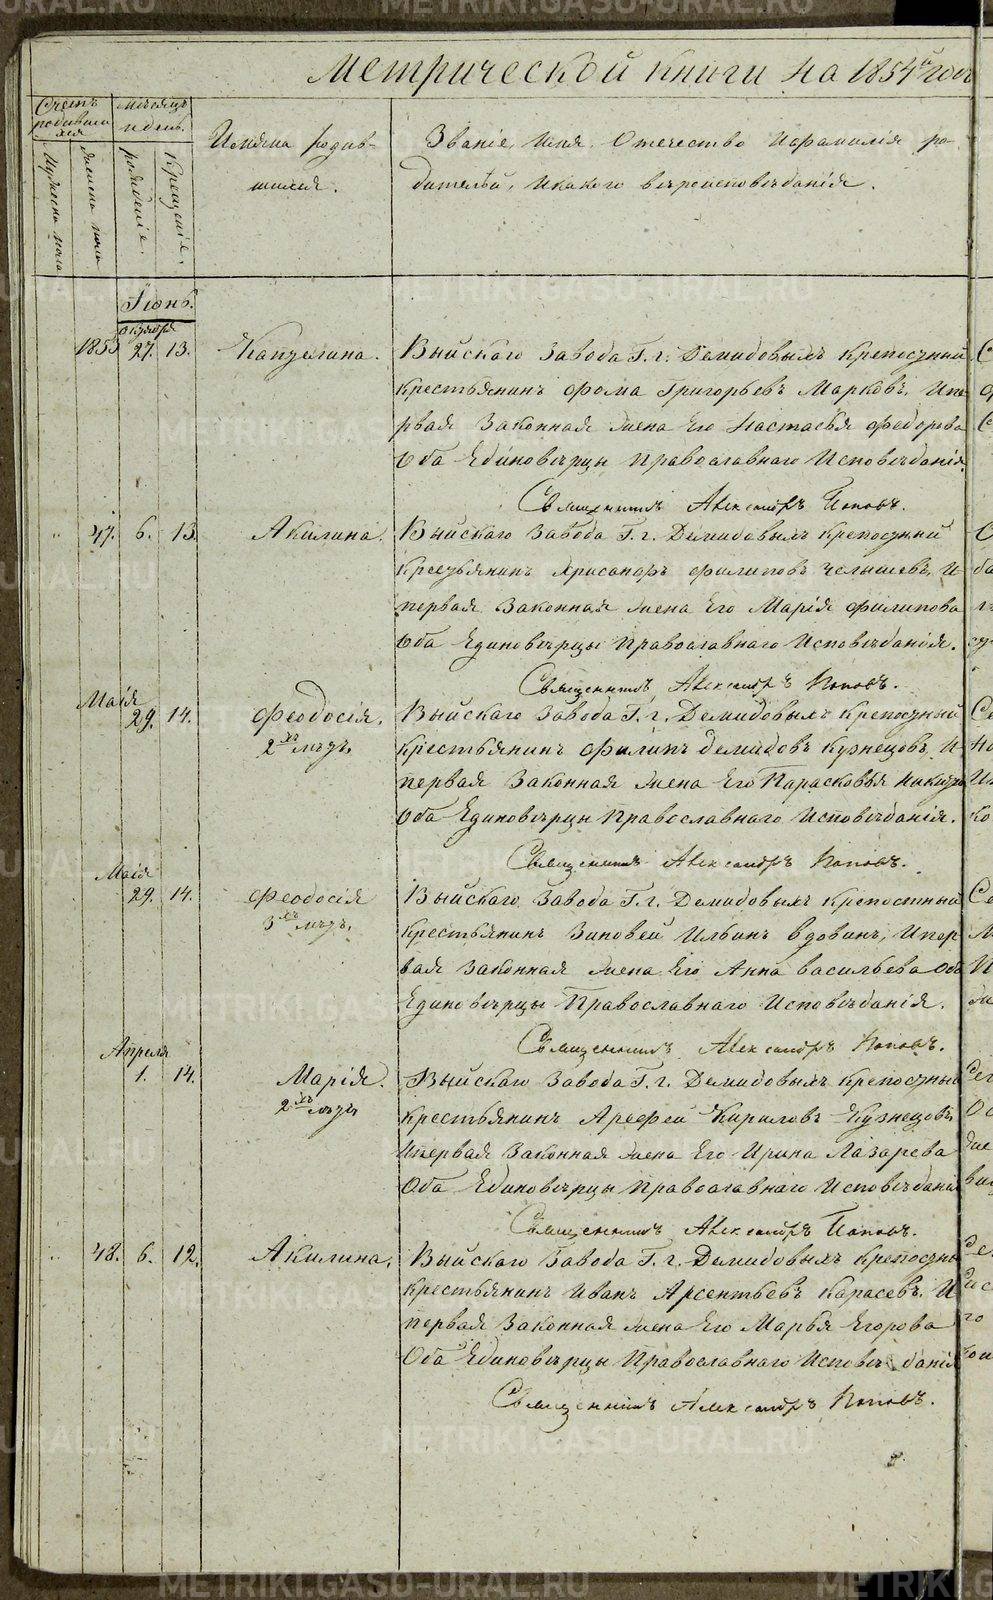 Метрической книги на 1854й годъ
Счетъ родившихся
Мужеска пола
Женска пола
Месяцъ и день
рожденіе.
Крещеніе.
Имяна родив-
шихся.
Званіе, Имя, Отечество Ифамилія ро-
дителей, Икакого вероисповеданія.
Іюнь.
Октября
1853 27. 13. Капулина. Выйскаго Завода Г. г. Демидовымъ Крепостный
крестьянинъ Фома Григорьевъ Марковъ, Ипе
рвая Законная жена Его Настасья Федорова
Оба Единоверцы Православнаго Исповеданія.
Священникъ Александръ Поповъ.
47. 6. 13. Акилина. Выйскаго Завода Г. г. Демидовымъ Крепостный
Крестьянинъ Хрисанфъ Филиповъ Челышевъ, И
первая Законная жена Его Марія Филипова
Оба Единоверцы Православнаго Исповеданія.
Священникъ Александръ Поповъ.
Маія
29. 14. Феодосія. Выйскаго Завода Г. г. Демидовымъ Крепостный
2хъ летъ, Крестьянинъ Филипъ Демидовъ Кузнецовъ, И
первая Законная жена Его Парасковья Никитина
Оба Единоверцы Православнаго Исповеданія.
Священникъ Александръ Поповъ.
Маія
29. 14. Феодосія Выйскаго Завода Г. г. Демидовымъ Крепостный
3хъ летъ, Крестьянинъ Зиновей Ильинъ Вдовинъ, Ипер
вая Законная жена Его Анна Васильева Оба
Единоверцы Православнаго Исповеданія.
Священникъ Александръ Поповъ.
Апреля
1. 14. Марія. Выйскаго Завода Г. г. Демидовымъ Крепостный
2хъ летъ Крестьянинъ Арефей Кириловъ Кузнецовъ
Ипервая Законная жена Его Ирина Лазарева
Оба Единоверцы Православнаго Исповеданія
Священникъ Александръ Поповъ.
48. 6. 12. Акилина. Выйскаго Завода Г. г. Демидовымъ Крепостны
Крестьянинъ Иванъ Арсентьевъ Карасевъ, И
первая Законная жена Его Марья Егорова
Оба Единоверцы Православнаго Исповеданія
Священникъ Александръ Поповъ.
METRIKI.GASO-URAL.RU